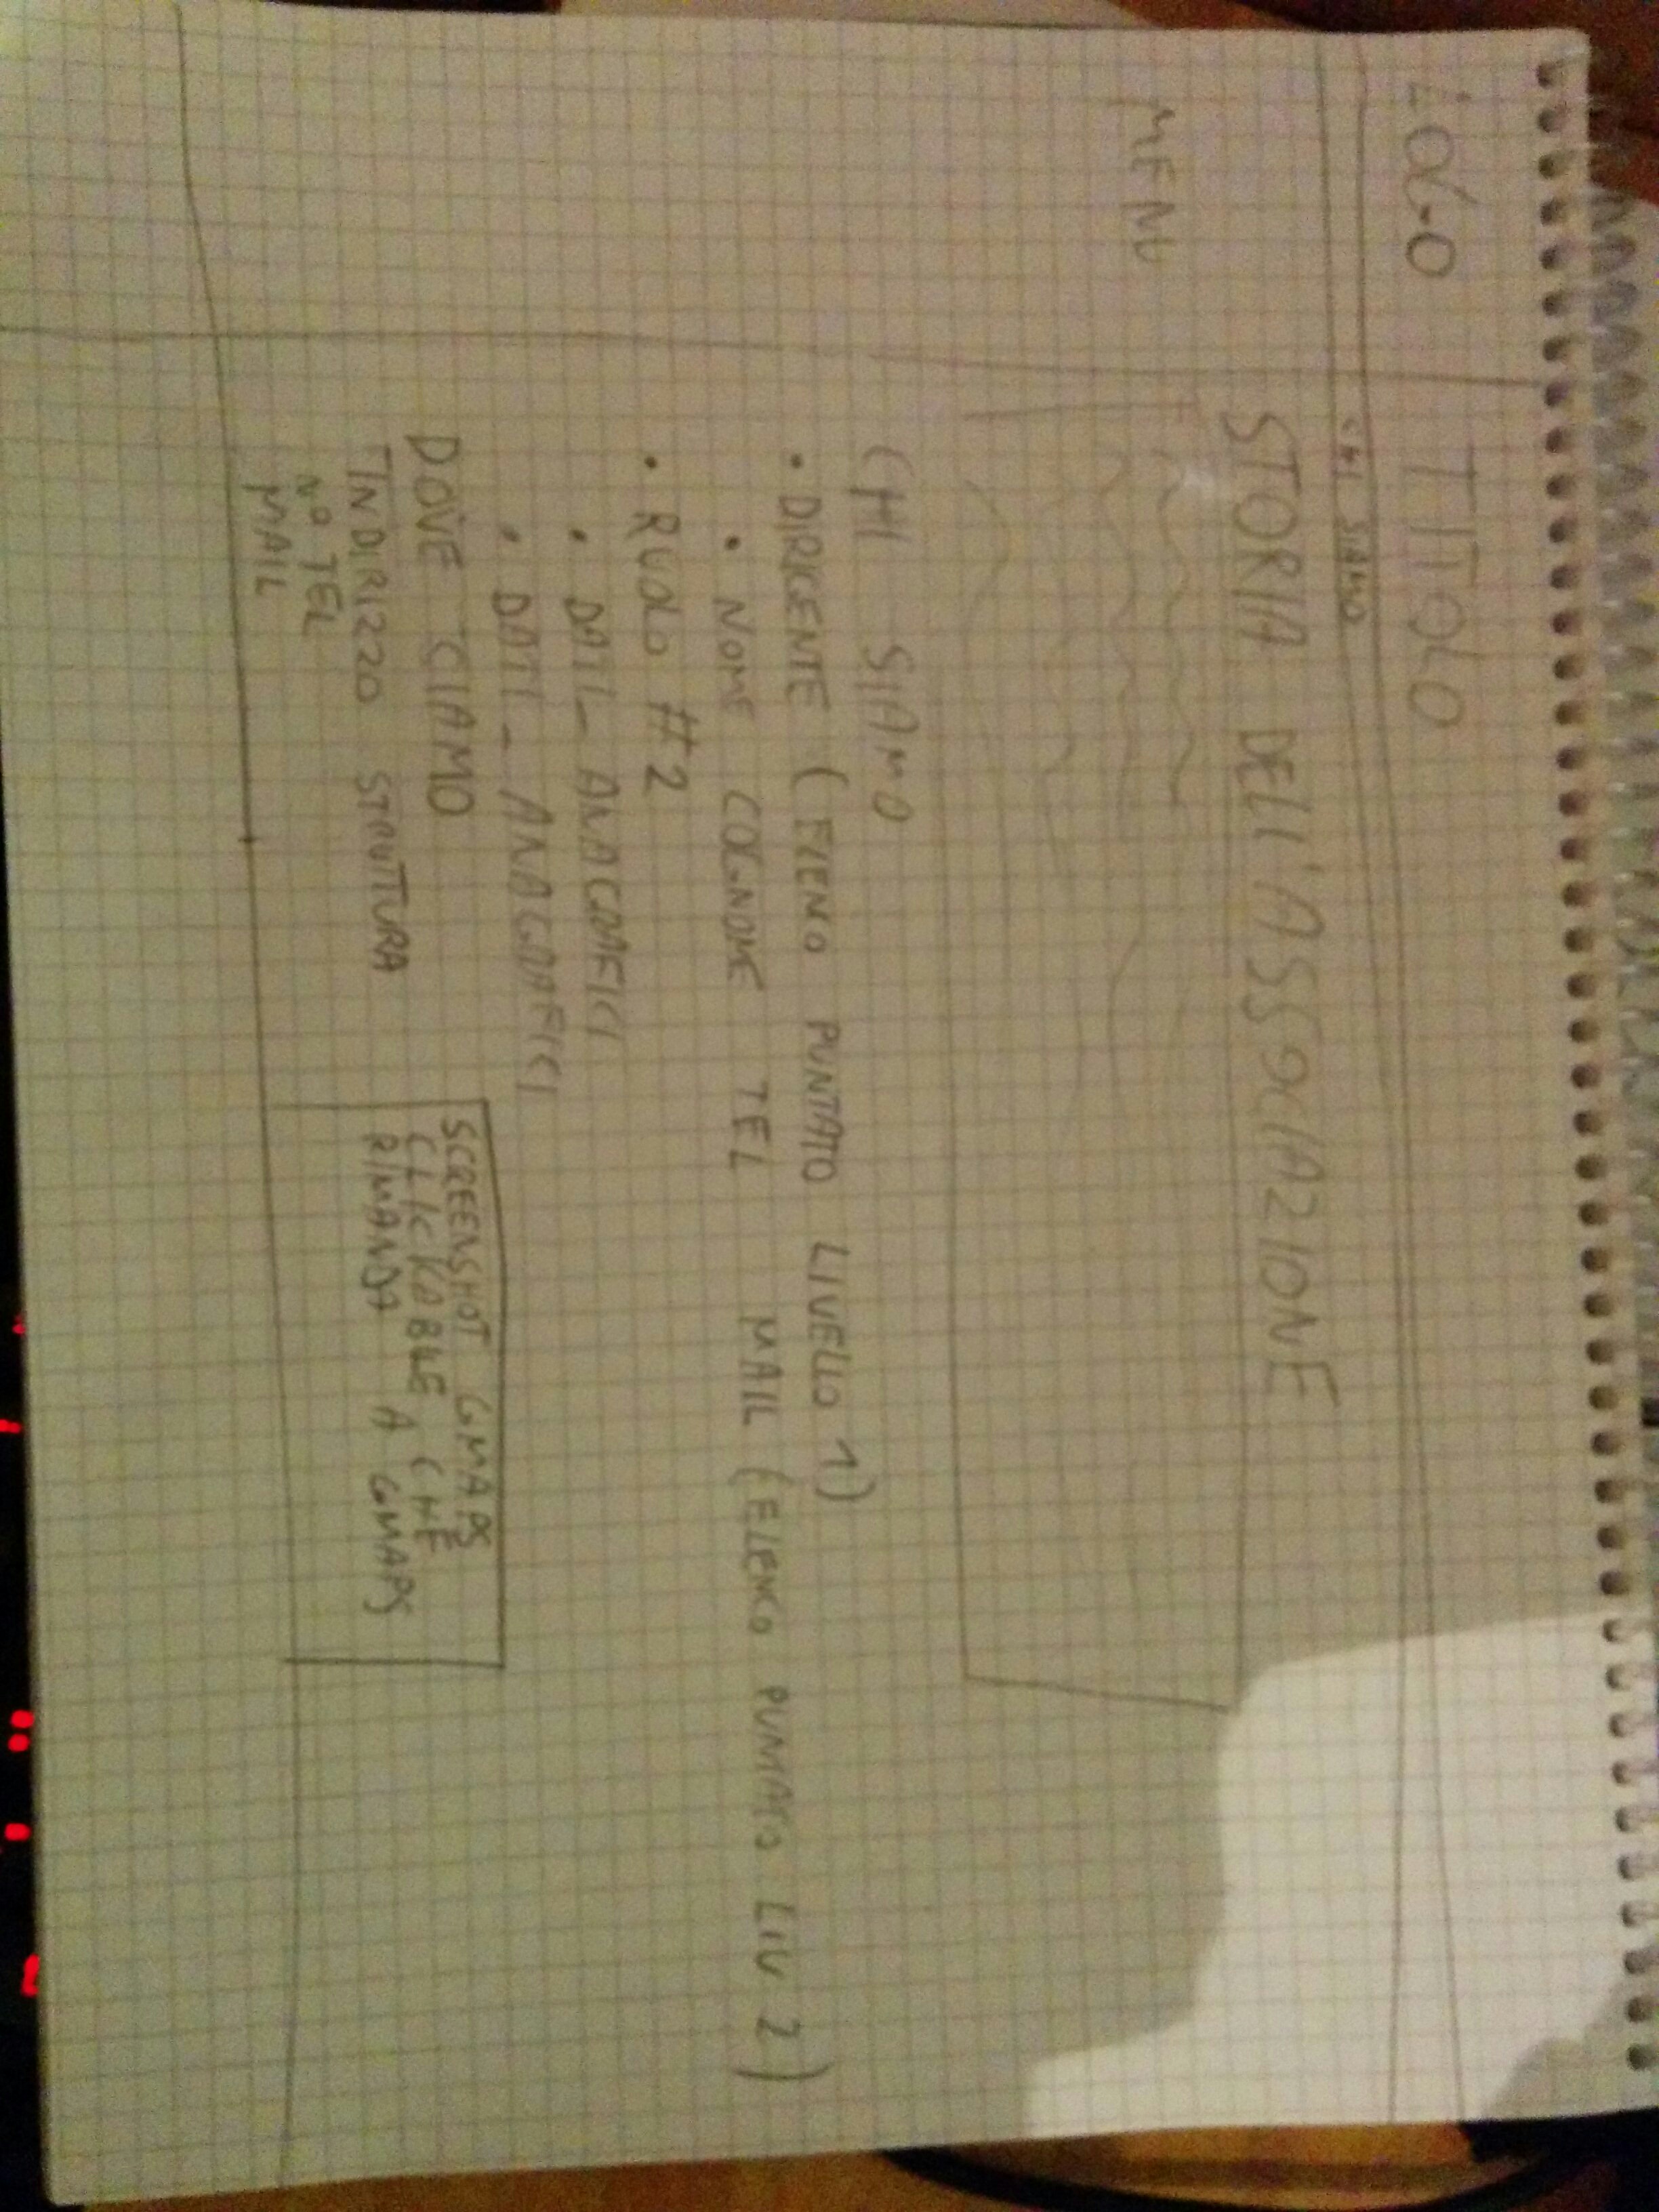 LOGO TITOLO
CHI SIAMO
MENU
STORIA DELL'ASSOCIAZIONE
CHI SIAMO
• DIRIGENTE (ELENCO PUNTATO LIVELLO 1)
• NOME COGNOME TEL MAIL (ELENCO PUNTATO LIV 2)
• RUOLO #2
• DATI_ANAGRAFICI
• DATI_ANAGRAFICI
DOVE SIAMO
INDIRIZZO STRUTTURA
N° TEL
MAIL
SCREENSHOT GMAPS
CLICKABLE CHE
RIMANDA A GMAPS